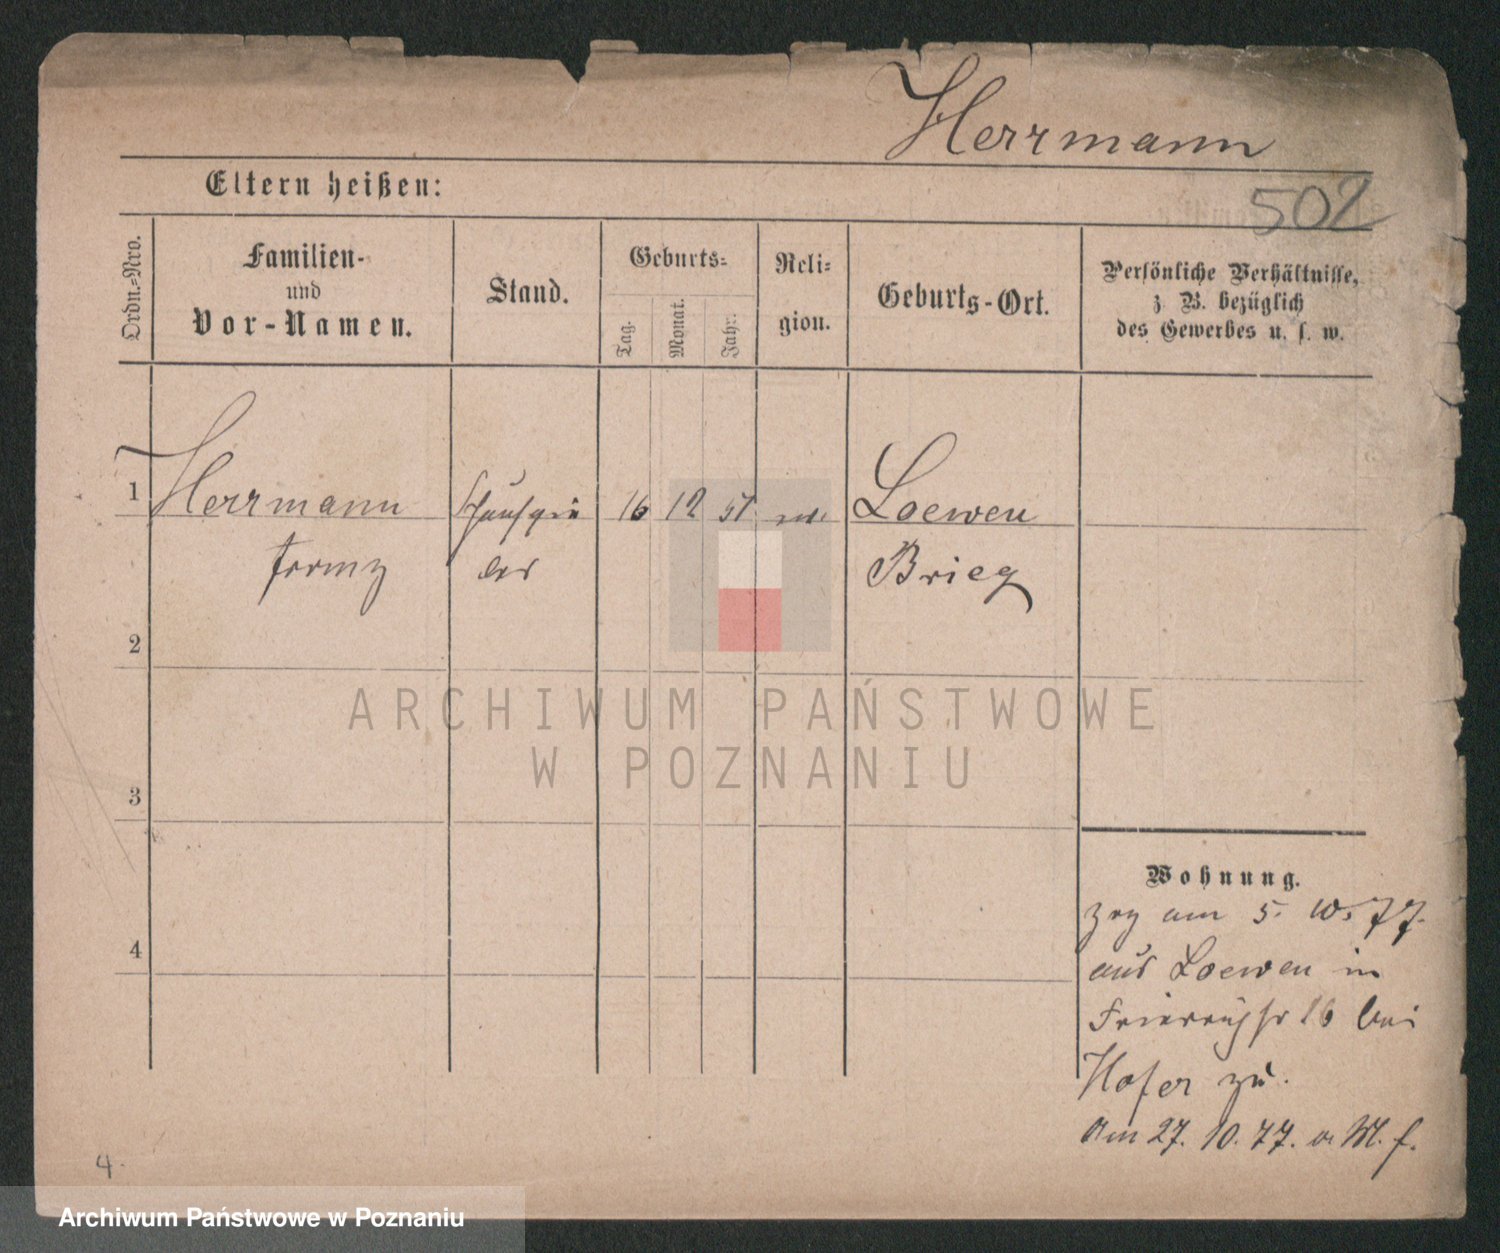 Herrmann
Eltern heißen:
502
Ordn.=Nro.
Familien-
und
Vor-Namen.
Stand.
Geburts=
Tag.
Monat.
Jahr.
Reli=
gion.
Geburts-Ort.
Persönliche Verhältnisse,
z. B. bezüglich
des Gewerbes u. s. w.
1 Herrmann 16 12 51 Loewen
Franz Brieg
2
3
4
Wohnung.
zog am 5. 10. 77.
aus Loewen in
16 bei
Hofer zu.
Am 27. 10. 77.
4.
ARCHIWUM PAŃSTWOWE
W POZNANIU
Archiwum Państwowe w Poznaniu